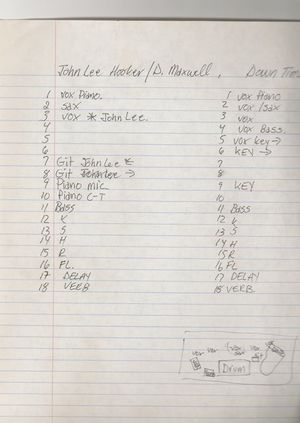 John Lee Hooker / D. Maxwell, Down Tim
1 vox Piano.
2 sax
3 vox * John Lee.
4
5
6
7 Git John Lee ←
8 Git John Lee →
9 Piano mic
10 Piano C-T
11 Bass
12 K
13 S
14 H
15 R
16 FL.
17 DELAY
18 VERB
1 vox Piano
2 vox/sax
3 vox
4 vox Bass.
5 vox key →
6 KEY →
7
8
9 KEY
10
11 Bass
12 K
13 S
14 H
15 R
16 FL
17 DELAY
18 VERB.
vox vox vox sax vox
Git
Drum